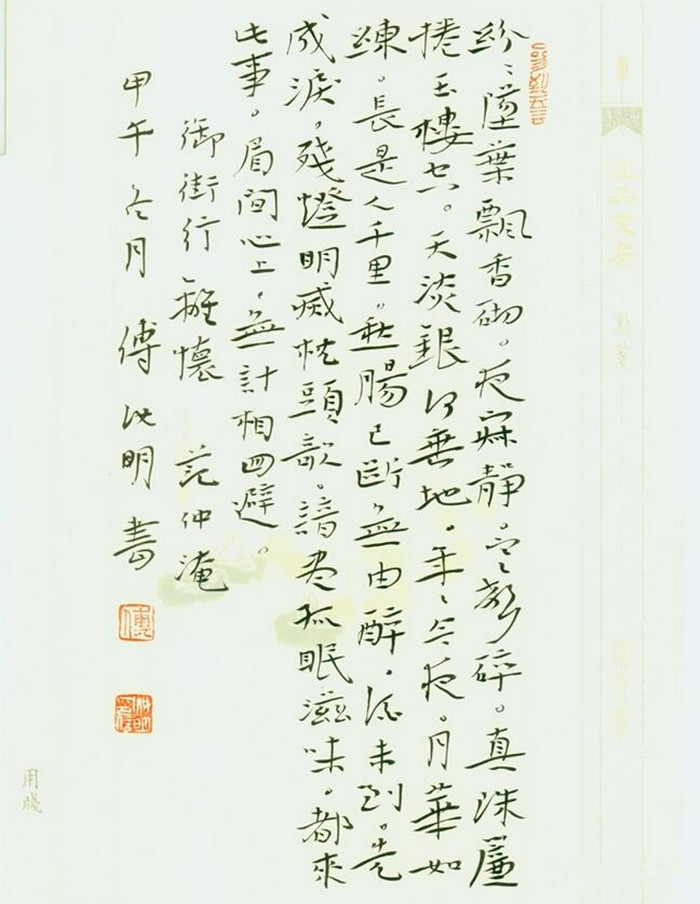 紛〻墮葉飄香砌。夜寂靜。寒聲碎。真珠簾
捲玉樓空。天淡銀河垂地。年〻今夜。月華如
練。長是人千里。愁腸已斷無由醉。酒未到。先
成淚。殘燈明滅枕頭欹。諳盡孤眠滋味。都來
此事。眉間心上。無計相囬避。
御街行 離懷 范仲淹
甲午冬月 傅 明 書
用牋